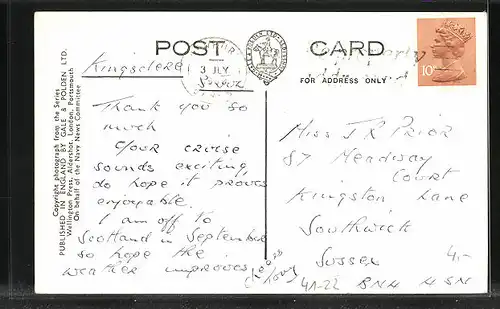 POST CARD
FOR ADDRESS ONLY
3 JLY
10P
Kingsclere
Thank you so
much
Your cruise
sounds exciting,
do hope it proves
enjoyable.
I am off to
Scotland in September
so hope the
weather improves
Miss J R Prior
87 Meadway
Court
Kingston Lane
Southwick
Sussex
4,-
BN4 4SN
Copyright photograph from the Series
PUBLISHED IN ENGLAND BY GALE & POLDEN LTD.
Wellington Press, Aldershot, London, Portsmouth
On behalf of the Navy News Committee